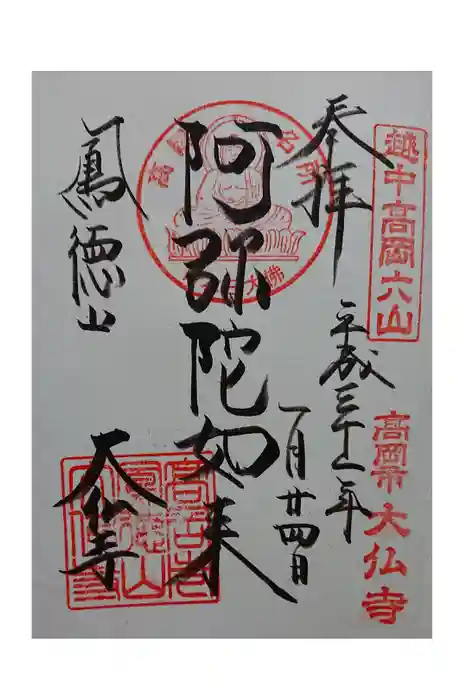 越中高岡六山
高岡市大仏寺
奉拝
平成三十一年
一月廿四日
阿弥陀如来
鳳徳山
大仏寺